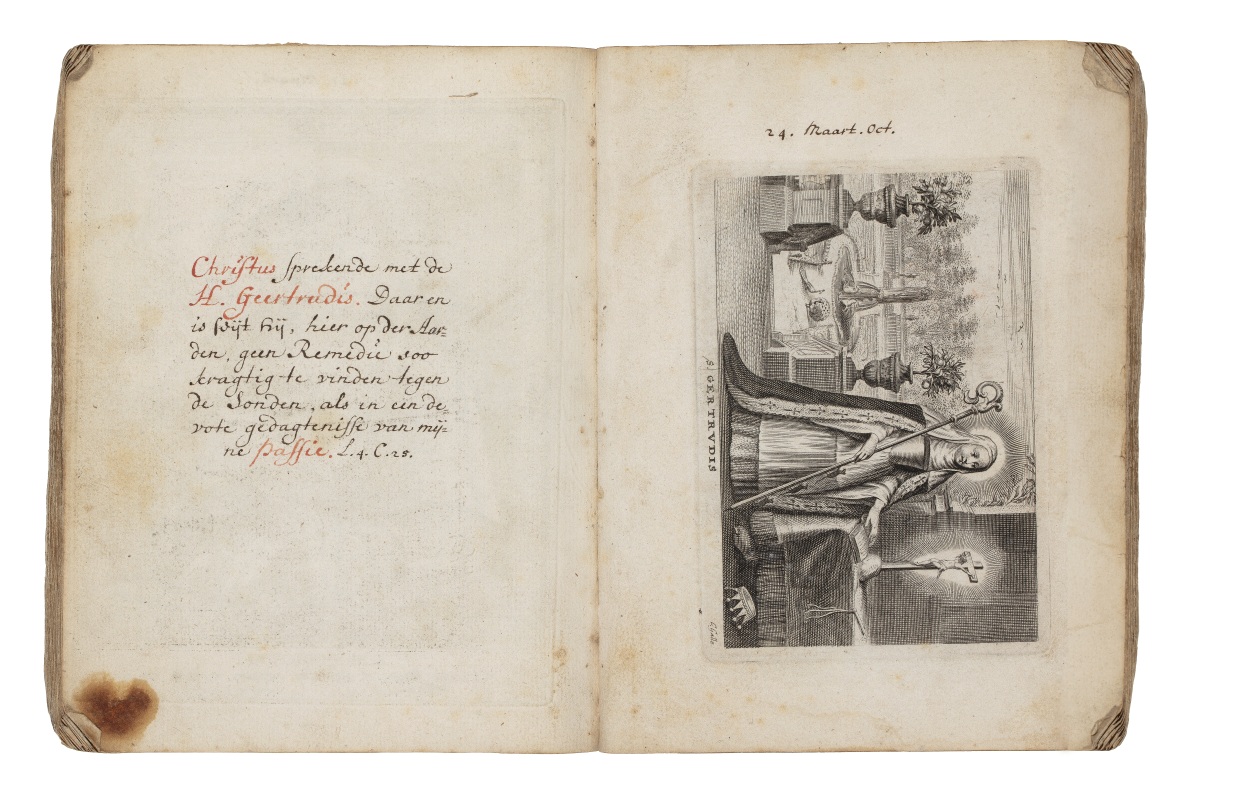 Christus sprekende met de
H. Geertrudis. Daar en
is seijt hij, hier op der Aar=
den, geen Remedie soo
kragtig te vinden tegen
de Sonden, als in een de=
vote gedagtenisse van mij=
ne Passie. L. 4. C. 25.
24. Maart. Oct.
S. GERTRVDIS